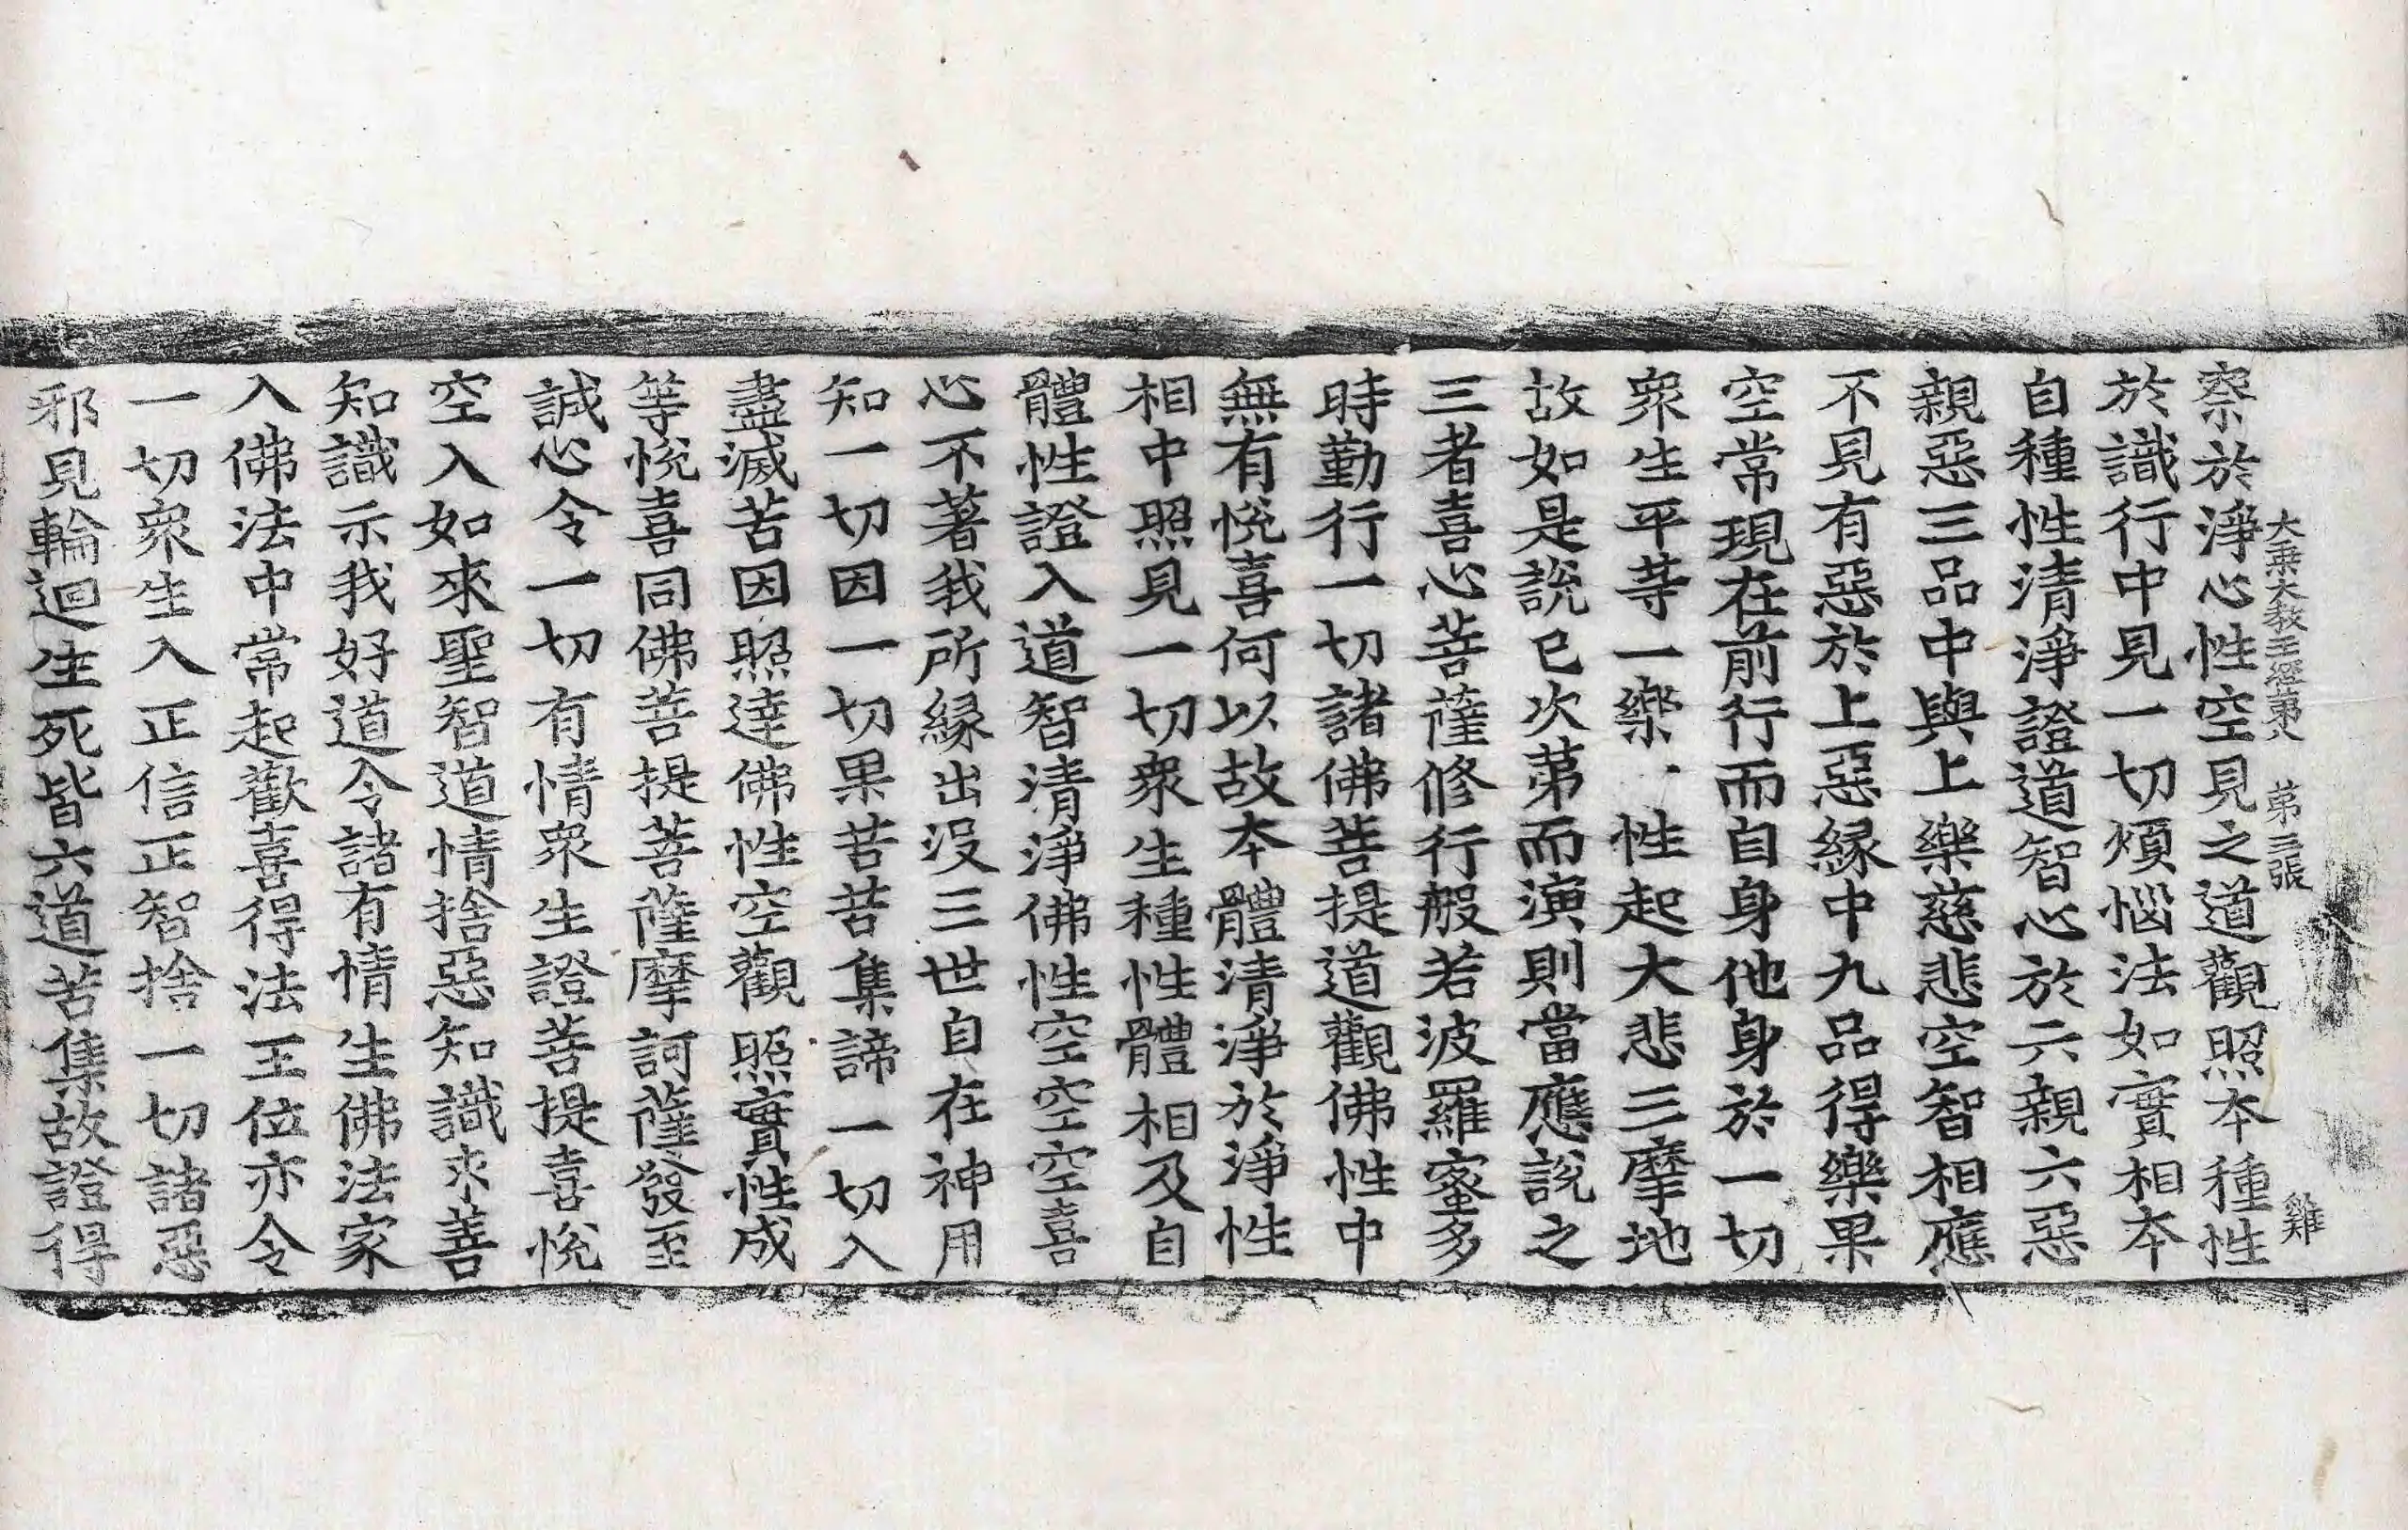 大乗大教王經苐八 苐三張 雞
察於淨心性空見之道觀照夲種性
於識行中見一切煩惱法如實相夲
自種性清淨證道智心於六親六惡
親惡三品中與上樂慈悲空智相應
不見有惡於上惡緣中九品得樂果
空常現在前行而自身他身於一切
衆生平等一樂一性起大悲三摩地
故如是說已次苐而演則當應說之
三者喜心菩薩修行般若波羅蜜多
時勤行一切諸佛菩提道觀佛性中
無有悅喜何以故夲體清淨於淨性
相中照見一切衆生種性體相及自
體性證入道智清淨佛性空空空喜
心不著我所緣出沒三世自在神用
知一切因一切果苦苦集諦一切入
盡滅苦因照達佛性空觀照實性成
等悅喜同佛菩提菩薩摩訶薩發至
誠心令一切有情衆生證菩提喜悅
空入如來聖智道情捨惡知識求善
知識示我好道令諸有情生佛法家
入佛法中常起歡喜得法王位亦令
一切衆生入正信正智捨一切諸惡
邪見輪迴生死皆六道苦集故證得